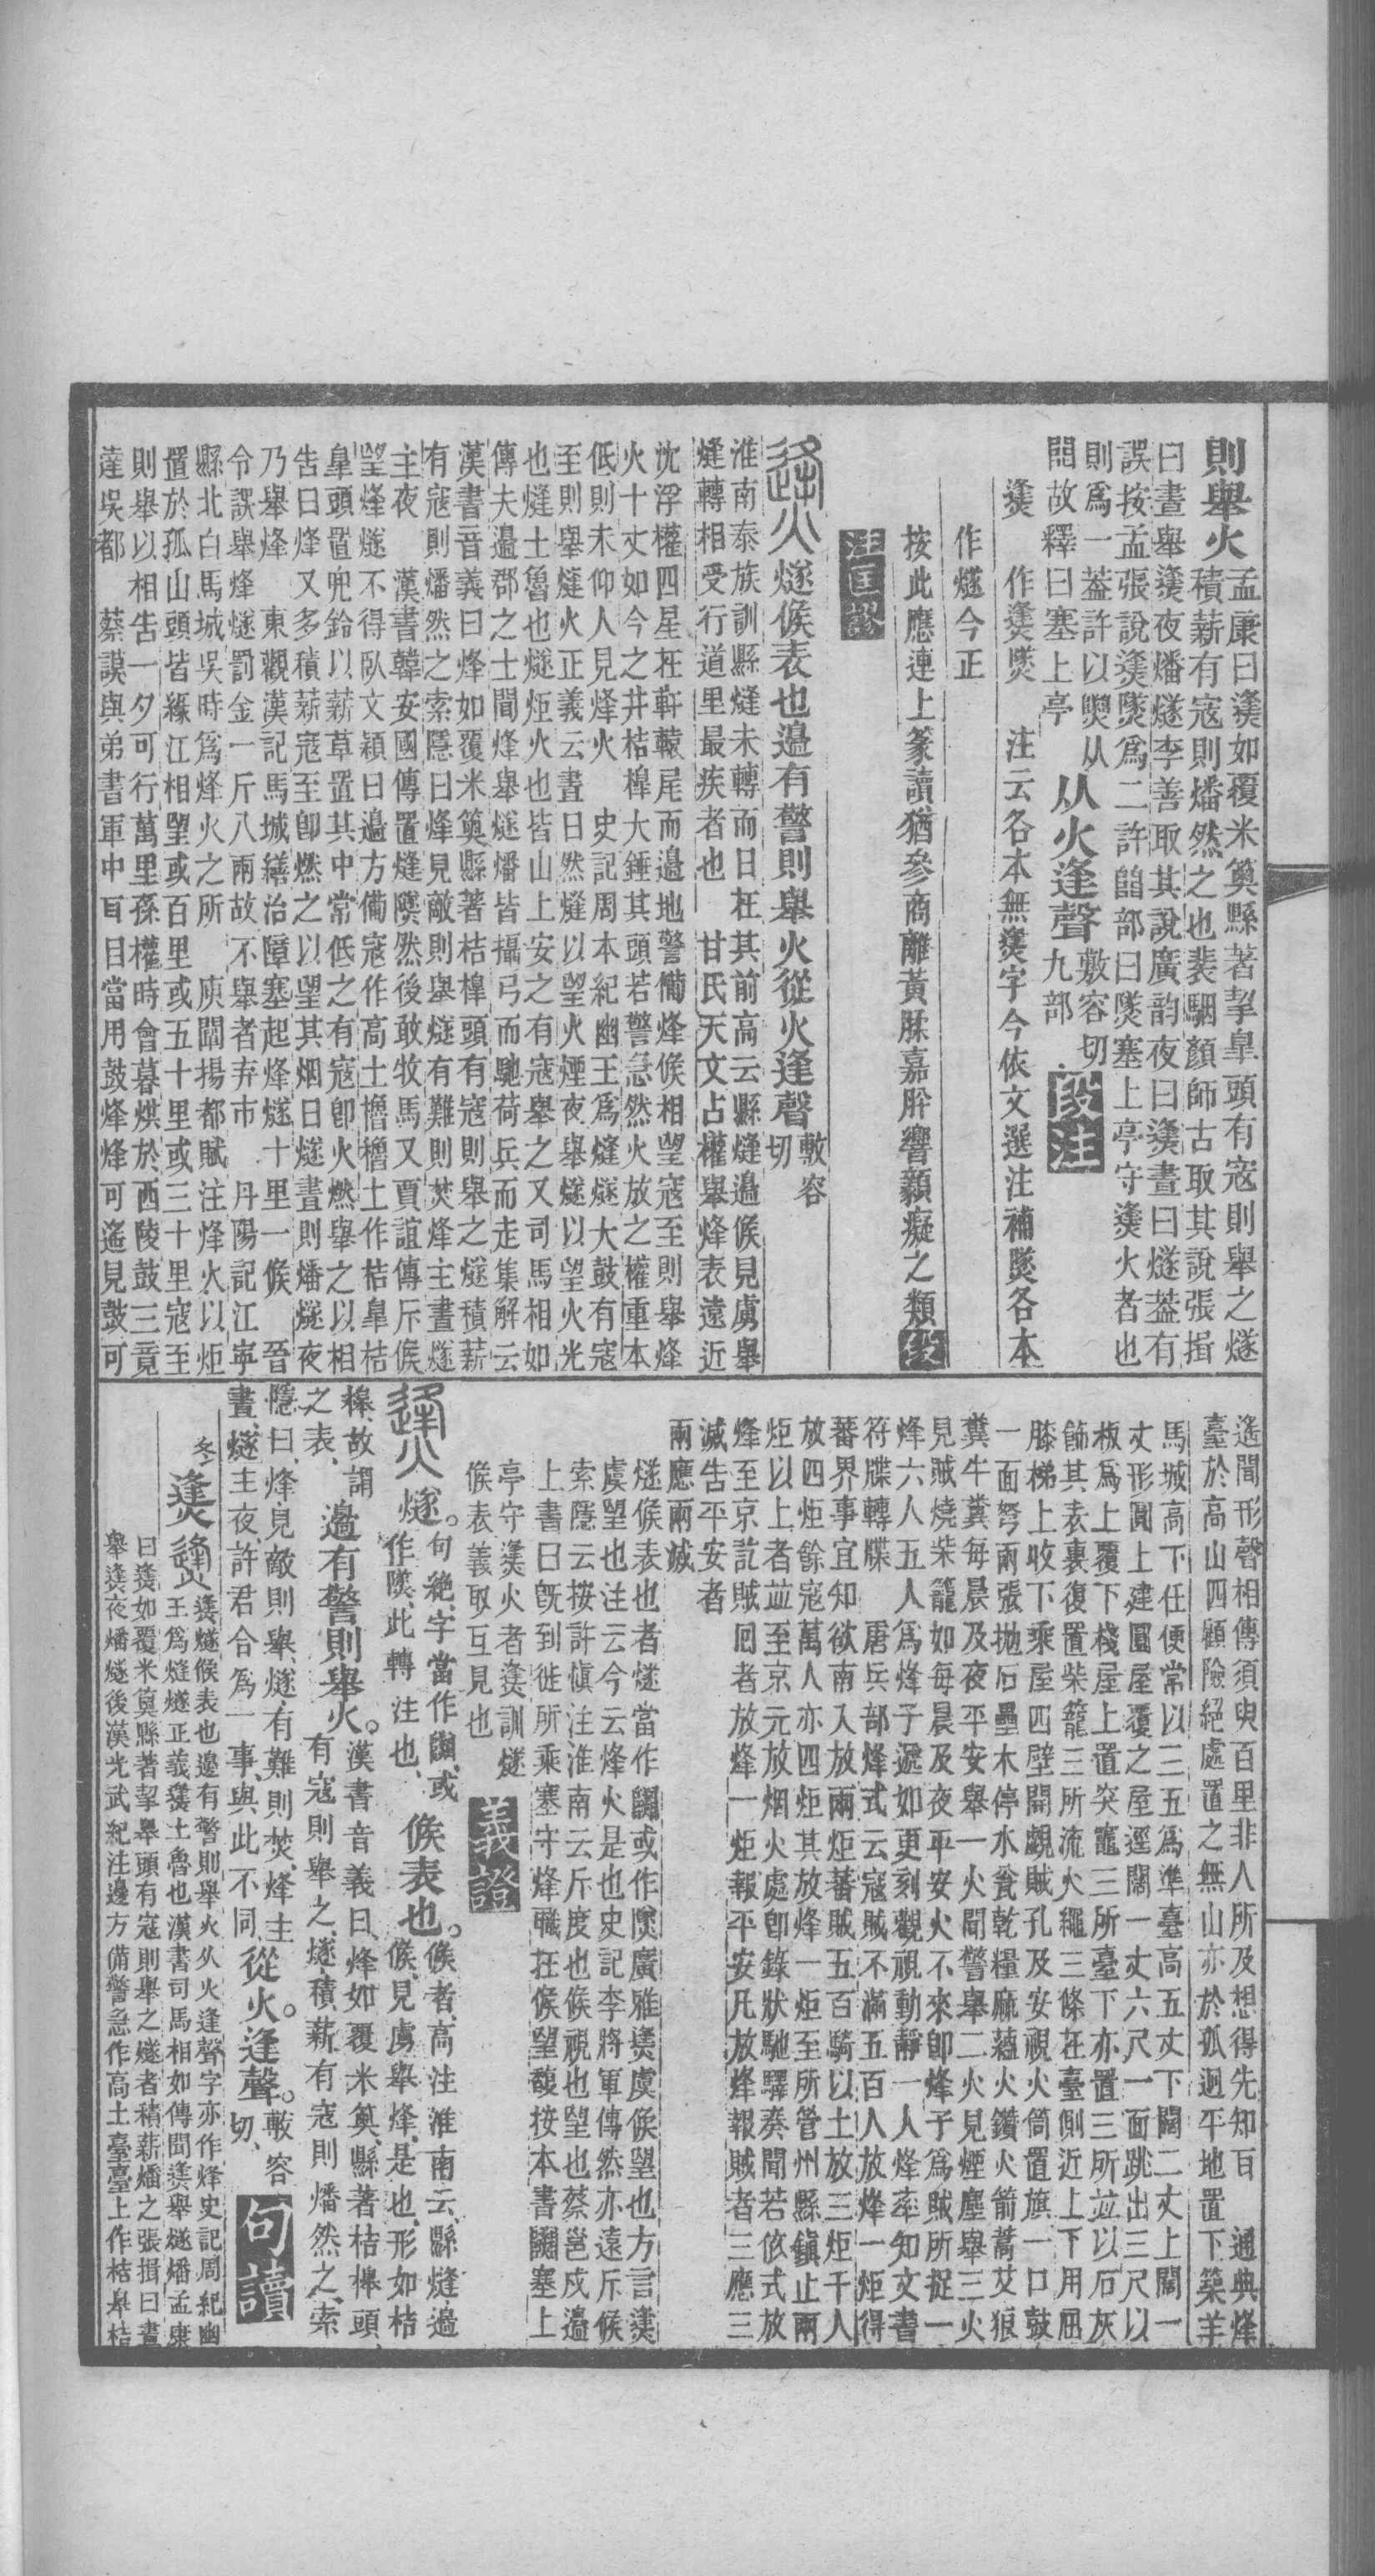 則舉火
孟康曰㷭如覆米䉛縣著挈皐頭有寇則舉之燧
積薪有寇則燔然之也裴駰顏師古取其說張揖
曰晝舉㷭夜燔燧李善取其說廣韵夜曰㷭晝曰燧葢有
誤按孟張說㷭㸂爲二許𨺅部曰㸂塞上亭守㷭火者也
則爲一葢許以㷭从
閒故釋曰塞上亭
从火逢聲
敷容切
九部
段注
㷭 作㷭㸂 注云各本無㷭字今依文選注補㸂各本
作燧今正
按此應連上篆讀猶參商離黃脙嘉肸響顡癡之類段
注匡謬
燧候表也邉有警則舉火從火逢聲
敷容
切
淮南泰族訓縣㷭未轉而日在其前高云縣㷭邉候見虜舉
㷭轉相受行道里最疾者也 甘氏天文占權舉烽表遠近
沈浮權四星在軒轅尾而邉地警備烽候相望寇至則舉烽
火十丈如今之井桔槔大錘其頭若警急然火放之權重本
低則末仰人見烽火 史記周本紀幽王爲㷭燧大鼓有寇
至則舉㷭火正義云晝日然㷭以望火煙夜舉燧以望火光
也㷭土魯也燧炬火也皆山上安之有寇舉之又司馬相如
傳夫邉郡之士聞烽舉燧燔皆攝弓而馳荷兵而走集解云
漢書音義曰烽如覆米䉛縣著桔槔頭有寇則舉之燧積薪
有寇則燔然之索隱曰烽見敵則舉燧有難則焚烽主晝燧
主夜 漢書韓安國傳置㷭㸂然後敢牧馬又賈誼傳斥候
望烽燧不得臥文穎曰邉方備寇作高土櫓櫓上作桔皐桔
皐頭置兜鈴以薪草置其中常低之有寇卽火燃舉之以相
告曰烽又多積薪寇至卽燃之以望其烟曰燧晝則燔燧夜
乃舉烽 東觀漢記馬城繕治障塞起烽燧十里一候 晉
令誤舉烽燧罰金一斤八兩故不舉者弃市 丹陽記江寧
縣北白馬城吳時爲烽火之所 庾闡揚都賦注烽火以炬
置於孤山頭皆緣江相望或百里或五十里或三十里寇至
則舉以相告一夕可行萬里孫權時會暮烘於西陵鼓三竟
達吳都 蔡謨與弟書軍中耳目當用鼓烽烽可遙見鼓可
遙聞形聲相傳須臾百里非人所及想得先知百 通典烽
臺於高山四顧險絕處置之無山亦於孤迥平地置下築羊
馬城高下任便常以三五爲準臺高五丈下闊二丈上闊一
丈形圓上建圓屋覆之屋逕闊一丈六尺一面跳出三尺以
板爲上覆下棧屋上置突竈三所臺下亦置三所並以石灰
飾其表裏復置柴籠三所流火繩三條在臺側近上下用屈
膝梯上收下乘屋四壁開覷賊孔及安視火筒置旗一口鼓
一面弩兩張抛石壘木停水瓮乾糧麻蘊火鑽火箭蒿艾狼
糞牛糞每晨及夜平安舉一火聞警舉二火見煙塵舉三火
見賊燒柴籠如每晨及夜平安火不來卽烽子爲賊所捉一
烽六人五人爲烽子遞如更刻觀視動靜一人烽率知文書
符牒轉牒 唐兵部烽式云寇賊不滿五百人放烽一炬得
蕃界事宜知欲南入放兩炬蕃賊五百騎以上放三炬千人
放四炬餘寇萬人亦四炬其放烽一炬至所管州縣鎮止兩
炬以上者竝至京元放烟火處卽錄狀馳驛奏聞若依式放
烽至京訖賊囘者放烽一炬報平安凡放烽報賊者三應三
滅告平安者
兩應兩滅
燧候表也者燧當作𨽌或作㸂廣雅㷭虞候望也方言㷭
虞望也注云今云烽火是也史記李將軍傳然亦遠斥候
索隱云按許愼注淮南云斥度也候視也望也蔡邕戍邉
上書曰旣到徙所乘塞守烽職在候望馥按本書𨽌塞上
亭守㷭火者㷭訓燧
候表義取互見也
義證
燧。
句絶、字當作𨽌、或
作㸂、此轉注也、
候表也。
候者、高注淮南云、縣㷭邉
候、見虜舉烽、是也、形如桔
槔、故謂
之表、
邉有警則舉火。
漢書音義曰、烽如覆米䉛、縣著桔槔頭、
有寇則舉之、燧、積薪、有寇則燔然之、索
隱曰、烽見敵則舉、燧、有難則焚、烽主
晝、燧主夜、許君合爲一事、與此不同、
從火。逢聲。
敷容
切、
句讀
冬 㷭
㷭燧候表也邊有警則舉火从火逢聲字亦作烽史記周紀幽
王爲㷭燧正義㷭土魯也漢書司馬相如傳聞㷭舉燧燔孟康
曰㷭如覆米䉛縣著挈皋頭有寇則舉之燧者積薪燔之張揖曰晝
舉㷭夜燔燧後漢光武紀注邊方備警急作高土臺臺上作桔皋桔